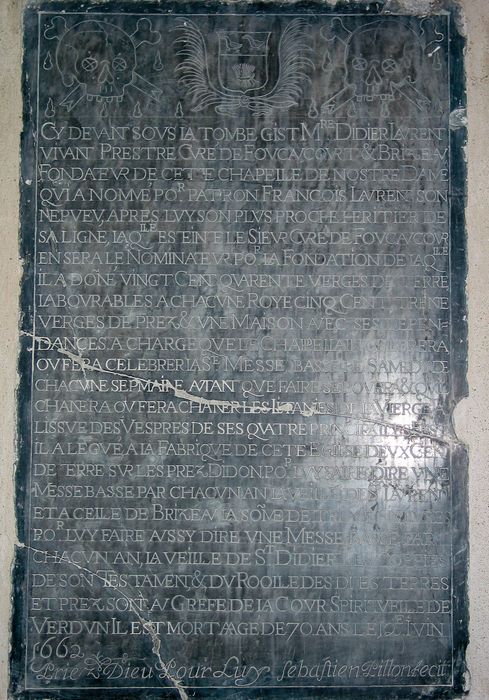 CY DEVANT SOVS LA TOMBE GIST M^RE DIDIER LAVRENT
VIVANT PRESTRE CVRÉ DE FOVCAVCOVRT & BRIZEAV
FONDATEVR DE CETTE CHAPELLE DE NOSTRE DAME
QVI A NOMMÉ PO^R PATRON FRANCOIS LAVRENT SON
NEPVEV, APRES LVY SON PLVS PROCHE HERITIER DE
SA LIGNE, LAQ^LLE ESTEINTE LE SIEVR CVRÉ DE FOVCAVCOVR
EN SERA LE NOMINATEVR PO^R LA FONDATION DE LAQ^LLE
IL A DOÑÉ VINGT CENT QVARENTE VERGES DE TERRE
LABOVRABLES A CHACVNE ROYE CINQ CENT TRENTE
VERGES DE PREZ & VNE MAISON AVEC SES DEPEN=
DANCES A CHARGE QVE LE CHAPELLAIN CELEBRERA
OV FERA CELEBRER LA S^TE MESSE BASSE LE SAMEDY DE
CHACVNE SEPMAINE AVTANT QVE FAIRE SE POVRA & QVIL
CHANERA OV FERA CHANER LES LITANIES DE LA VIERGE A
LISSVE DES VESPRES DE SES QVATRE PRINCIPALLES
IL A LEGVÉ A LA FABRIQVE DE CETE EGLISE DEVX CEN
DE TERRE SVR LES PREZ DIDON PO^R LVY FAIRE DIRE VNE
MESSE BASSE PAR CHACVN AN LA VEILLE DE S^T LAVREN
ET A CELLE DE BRIZEAV LA SOM̃E DE
PO^R LVY FAIRE AVSSY DIRE VNE MESSE BASSE PAR
CHACVN AN, LA VEILLE DE S^T DIDIER LE
DE SON TESTAMEN & DV ROOLLE DES DITES TERRES
ET PREZ SONT AV GREFE DE LA COVR SPIRITVELLE DE
VERDVN IL EST MORT AAGÉ DE 70 ANS LE IVIN
1662
Priez Dieu Pour Luy Sebastien Pillon fecit